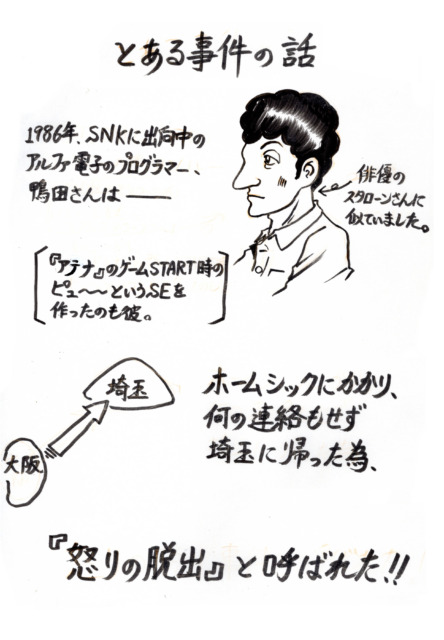 とある事件の話
1986年、SNKに出向中の
アルファ電子のプログラマー、
鴨田さんは――
俳優の
スタローンさんに
似ていました。
『アテナ』のゲームSTART時の
ピュ〜〜というSEを
作ったのも彼。
埼玉
大阪
ホームシックにかかり、
何の連絡もせず
埼玉に帰った為、
『怒りの脱出』と呼ばれた!!